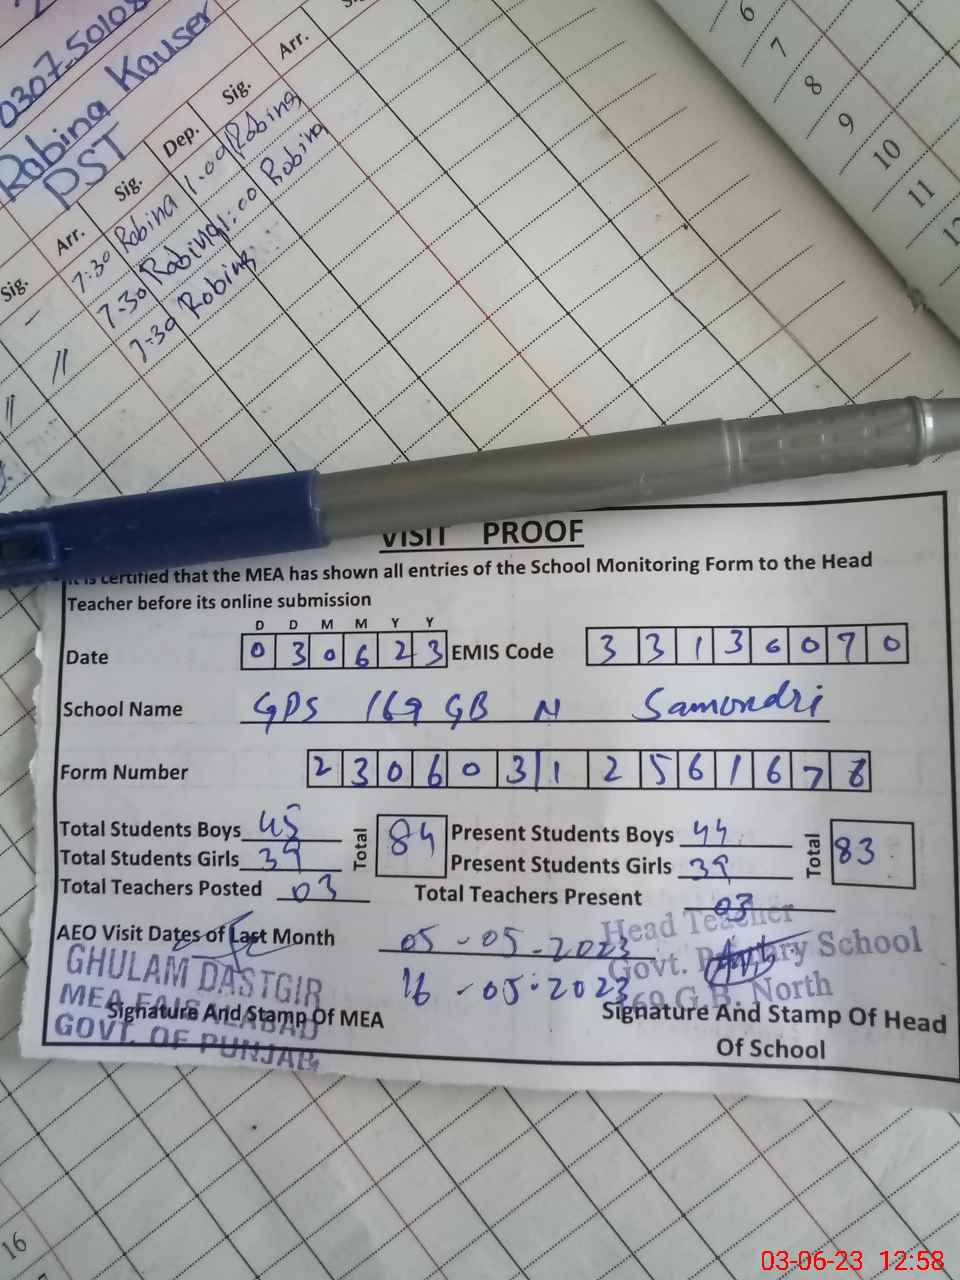 0307-50108
Robina Kauser
PST
Sig. Arr. Sig. Dep. Sig. Arr.
7:30 Robina 1:00 Robina
7:30 Robina 1:00 Robina
7:30 Robina
6
7
8
9
10
11
VISIT PROOF
It is certified that the MEA has shown all entries of the School Monitoring Form to the Head
Teacher before its online submission
D D M M Y Y
Date 0 3 0 6 2 3 EMIS Code 3 3 1 3 6 0 7 0
School Name GPS 169 GB N Samundri
Form Number 2 3 0 6 0 3 1 2 5 6 1 6 7 8
Total Students Boys 45 Total 84 Present Students Boys 44 Total 83
Total Students Girls 39 Present Students Girls 39
Total Teachers Posted 03 Total Teachers Present 03
AEO Visit Dates of Last Month 05-05-2023
16-05-2023
GHULAM DASTGIR
MEA FAISALABAD
GOVT. OF PUNJAB
Signature And Stamp Of MEA
Head Teacher
Govt. Primary School
169 G.B. North
Signature And Stamp Of Head
Of School
16
03-06-23 12:58